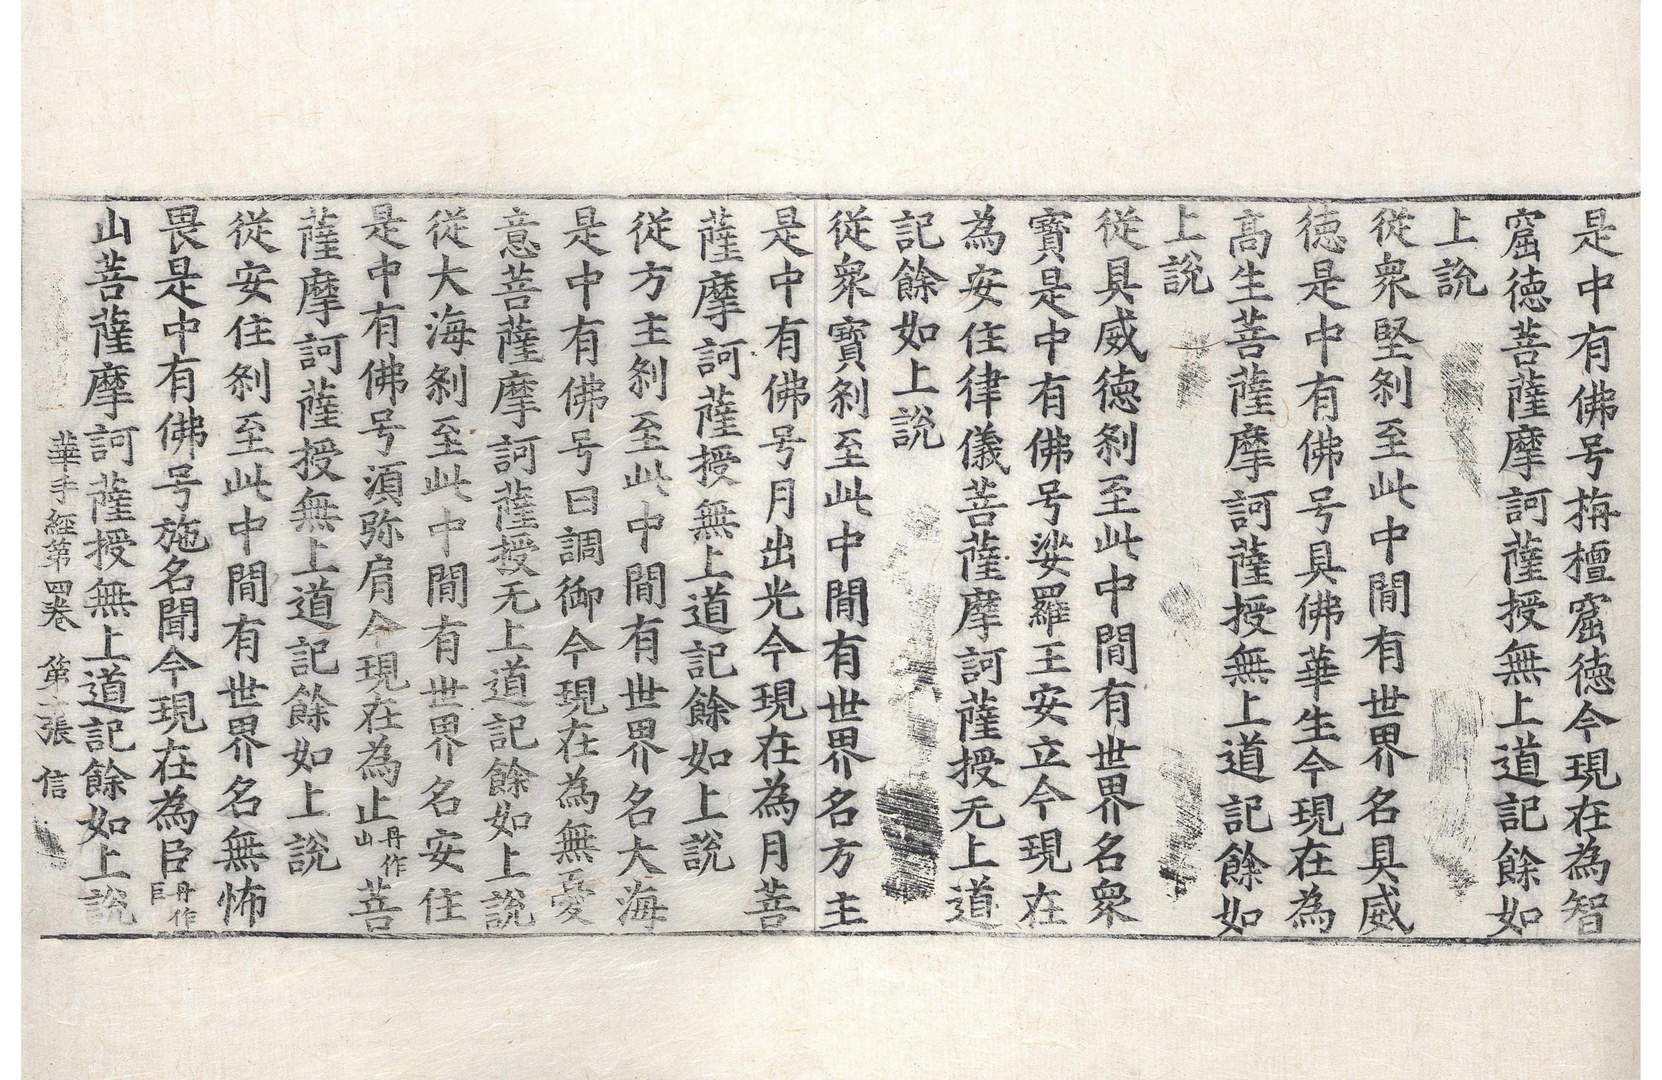 是中有佛号栴檀窟德今現在為智
窟德菩薩摩訶薩授無上道記餘如
上說
從衆堅刹至此中間有世界名具威
德是中有佛号具佛華生今現在為
高生菩薩摩訶薩授無上道記餘如
上說
從具威德刹至此中間有世界名衆
寶是中有佛号娑羅王安立今現在
為安住律儀菩薩摩訶薩授无上道
記餘如上說
從衆寶刹至此中間有世界名方主
是中有佛号月出光今現在為月菩
薩摩訶薩授無上道記餘如上說
從方主刹至此中間有世界名大海
是中有佛号曰調御今現在為無憂
意菩薩摩訶薩授无上道記餘如上說
從大海刹至此中間有世界名安住
是中有佛号湏弥肩今現在為止丹作山菩
薩摩訶薩授無上道記餘如上說
從安住刹至此中間有世界名無怖
畏是中有佛号施名聞今現在為臣丹作巨
山菩薩摩訶薩授無上道記餘如上說
華手經第四卷 第 張 信